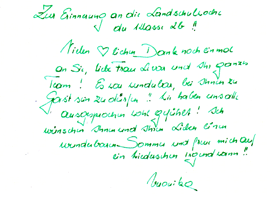 Zur Erinnerung an die Landschulwoche
der Klasse 2b !!
Vielen ♡lichen Dank noch einmal
an Sie, liebe Frau und Ihr ganzes
Team! Es war wunderbar, bei Ihnen zu
Gast sein zu dürfen! Wir haben uns alle
ausgesprochen wohl gefühlt! Ich
wünsche Ihnen und Ihren Lieben einen
wunderbaren Sommer und freu mich auf
ein Wiedersehen irgendwann!!